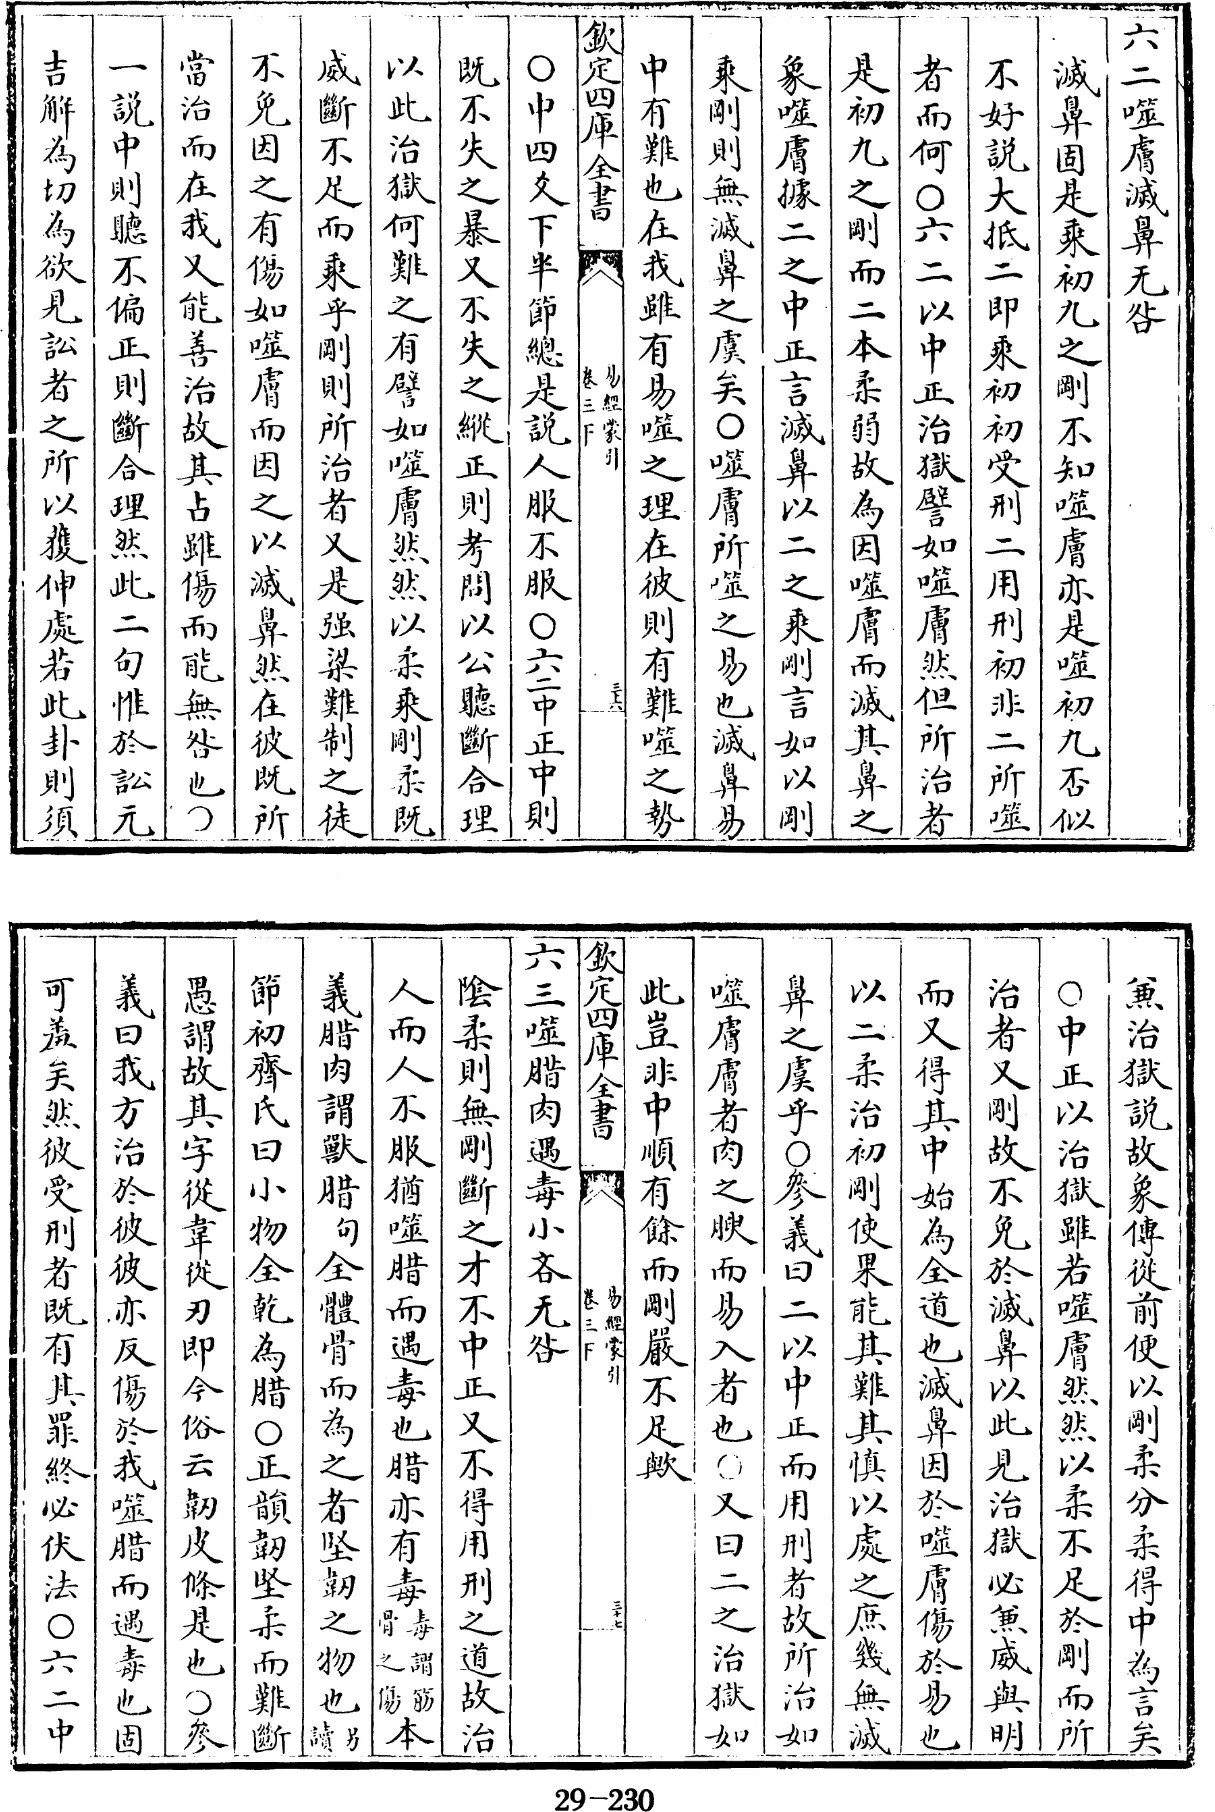 六二噬膚滅鼻无咎
滅鼻固是乘初九之剛不知噬膚亦是噬初九否似
不好説大抵二即乘初初受刑二用刑初非二所噬
者而何○六二以中正治獄譬如噬膚然但所治者
是初九之剛而二本柔弱故為因噬膚而滅其鼻之
象噬膚據二之中正言滅鼻以二之乘剛言如以剛
乘剛則無滅鼻之虞矣○噬膚所噬之易也滅鼻易
中有難也在我雖有易噬之理在彼則有難噬之勢
欽定四庫全書
易經蒙引
卷三下
三十六
○中四爻下半節總是説人服不服○六二中正中則
既不失之暴又不失之縱正則考問以公聽斷合理
以此治獄何難之有譬如噬膚然然以柔乘剛柔既
威斷不足而乘乎剛則所治者又是强梁難制之徒
不免因之有傷如噬膚而因之以滅鼻然在彼既所
當治而在我又能善治故其占雖傷而能無咎也○
一説中則聽不偏正則斷合理然此二句惟於訟元
吉解為切為欲見訟者之所以獲伸處若此卦則須
兼治獄説故象傳從前便以剛柔分柔得中為言矣
○中正以治獄雖若噬膚然然以柔不足於剛而所
治者又剛故不免於滅鼻以此見治獄必兼威與明
而又得其中始為全道也滅鼻因於噬膚傷於易也
以二柔治初剛使果能其難其慎以處之庶幾無滅
鼻之虞乎○參義曰二以中正而用刑者故所治如
噬膚膚者肉之腴而易入者也○又曰二之治獄如
此豈非中順有餘而剛嚴不足歟
欽定四庫全書
易經蒙引
卷三下
三十七
六三噬腊肉遇毒小吝无咎
陰柔則無剛斷之才不中正又不得用刑之道故治
人而人不服猶噬腊而遇毒也腊亦有毒毒謂筋骨之傷本
義腊肉謂獸腊句全體骨而為之者堅韌之物也另讀
節初齊氏曰小物全乾為腊○正韻韌堅柔而難斷
愚謂故其字從韋從刃即今俗云韌皮條是也○參
義曰我方治於彼彼亦反傷於我噬腊而遇毒也固
可羞矣然彼受刑者既有其罪終必伏法○六二中
29-230